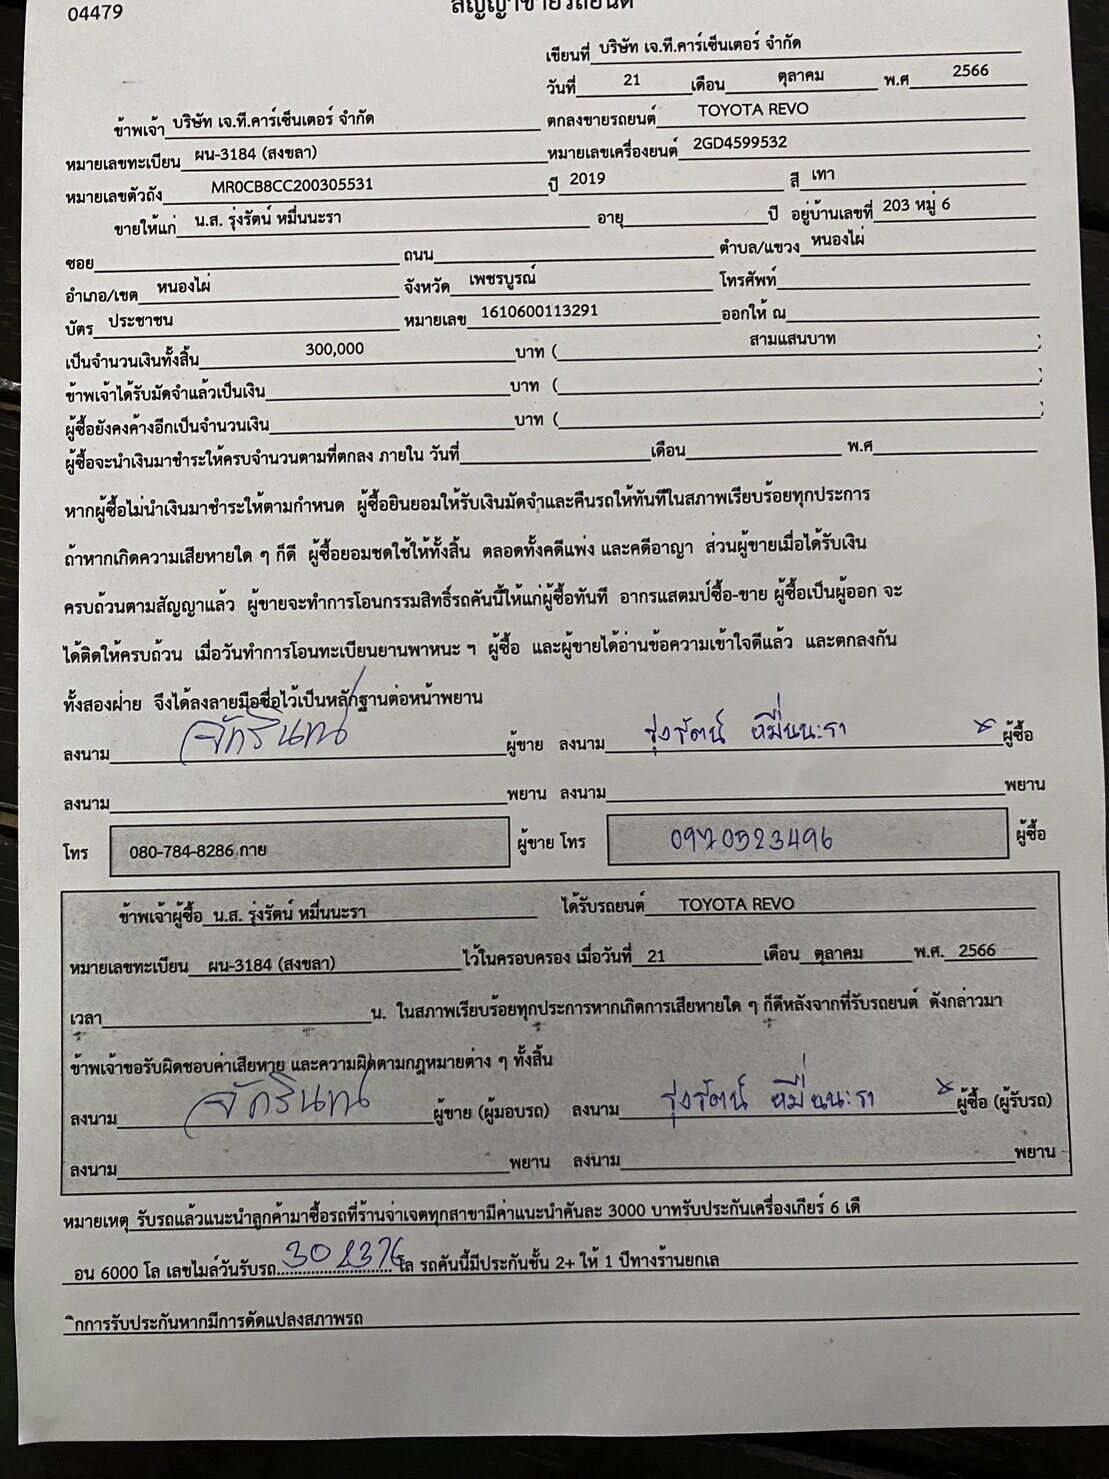 04479
สัญญาขายรถยนต์
เขียนที่ บริษัท เจ.ที.คาร์เซ็นเตอร์ จำกัด
วันที่ 21 เดือน ตุลาคม พ.ศ 2566
ข้าพเจ้า บริษัท เจ.ที.คาร์เซ็นเตอร์ จำกัด ตกลงขายรถยนต์ TOYOTA REVO
หมายเลขทะเบียน ผน-3184 (สงขลา) หมายเลขเครื่องยนต์ 2GD4599532
หมายเลขตัวถัง MR0CB8CC200305531 ปี 2019 สี เทา
ขายให้แก่ น.ส. รุ่งรัตน์ หมื่นนะรา อายุ ปี อยู่บ้านเลขที่ 203 หมู่ 6
ซอย ถนน ตำบล/แขวง หนองไผ่
อำเภอ/เขต หนองไผ่ จังหวัด เพชรบูรณ์ โทรศัพท์
บัตร ประชาชน หมายเลข 1610600113291 ออกให้ ณ
เป็นจำนวนเงินทั้งสิ้น 300,000 บาท ( สามแสนบาท )
ข้าพเจ้าได้รับมัดจำแล้วเป็นเงิน บาท ( )
ผู้ซื้อยังคงค้างอีกเป็นจำนวนเงิน บาท ( )
ผู้ซื้อจะนำเงินมาชำระให้ครบจำนวนตามที่ตกลง ภายใน วันที่ เดือน พ.ศ
หากผู้ซื้อไม่นำเงินมาชำระให้ตามกำหนด ผู้ซื้อยินยอมให้รับเงินมัดจำและคืนรถให้ทันทีในสภาพเรียบร้อยทุกประการ
ถ้าหากเกิดความเสียหายใด ๆ ก็ดี ผู้ซื้อยอมชดใช้ให้ทั้งสิ้น ตลอดทั้งคดีแพ่ง และคดีอาญา ส่วนผู้ขายเมื่อได้รับเงิน
ครบถ้วนตามสัญญาแล้ว ผู้ขายจะทำการโอนกรรมสิทธิ์รถคันนี้ให้แก่ผู้ซื้อทันที อากรแสตมป์ซื้อ-ขาย ผู้ซื้อเป็นผู้ออก จะ
ได้ติดให้ครบถ้วน เมื่อวันทำการโอนทะเบียนยานพาหนะ ฯ ผู้ซื้อ และผู้ขายได้อ่านข้อความเข้าใจดีแล้ว และตกลงกัน
ทั้งสองฝ่าย จึงได้ลงลายมือชื่อไว้เป็นหลักฐานต่อหน้าพยาน
ลงนาม จักรินทน์ ผู้ขาย ลงนาม รุ่งรัตน์ หมื่นนะรา × ผู้ซื้อ
ลงนาม พยาน ลงนาม พยาน
โทร 080-784-8286 กาย ผู้ขาย โทร 0970523496 ผู้ซื้อ
ข้าพเจ้าผู้ซื้อ น.ส. รุ่งรัตน์ หมื่นนะรา ได้รับรถยนต์ TOYOTA REVO
หมายเลขทะเบียน ผน-3184 (สงขลา) ไว้ในครอบครอง เมื่อวันที่ 21 เดือน ตุลาคม พ.ศ. 2566
เวลา น. ในสภาพเรียบร้อยทุกประการหากเกิดการเสียหายใด ๆ ก็ดีหลังจากที่รับรถยนต์ ดังกล่าวมา
ข้าพเจ้าขอรับผิดชอบค่าเสียหาย และความผิดตามกฎหมายต่าง ๆ ทั้งสิ้น
ลงนาม จักรินทน์ ผู้ขาย (ผู้มอบรถ) ลงนาม รุ่งรัตน์ หมื่นนะรา × ผู้ซื้อ (ผู้รับรถ)
ลงนาม พยาน ลงนาม พยาน
หมายเหตุ รับรถแล้วแนะนำลูกค้ามาซื้อรถที่ร้านจ่าเจตทุกสาขามีค่าแนะนำคันละ 3000 บาทรับประกันเครื่องเกียร์ 6 เดื
อน 6000 โล เลขไมล์วันรับรถ........................ โล รถคันนี้มีประกันชั้น 2+ ให้ 1 ปีทางร้านยกเล
ิกการรับประกันหากมีการดัดแปลงสภาพรถ